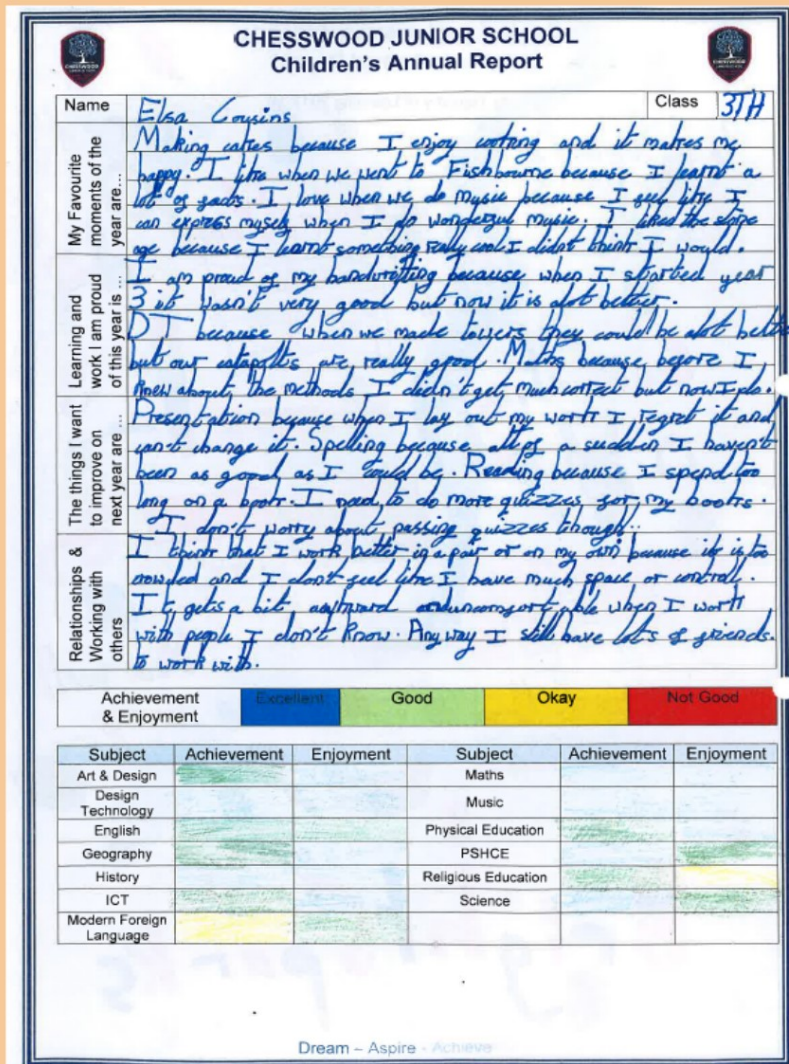 CHESSWOOD JUNIOR SCHOOL
Children's Annual Report
CHESSWOOD
CHESSWOOD
Name
Elsa Cousins
Class
3TH
My Favourite
moments of the
year are...
Making cakes because I enjoy cooking and it makes me
happy. I like when we went to Fishbourne because I learnt a
lot of facts. I love when we do music because I feel like I
can express myself when I do wonderful music. I liked the stone
age because I learnt something really cool I didn't think I would.
Learning and
work I am proud
of this year is ...
I am proud of my handwritting because when I started year
3 it wasn't very good but now it is alot better.
DT because when we made towers they could be alot better
but our catapolts are really good. Maths because before I
knew about the methods I didn't get much correct but now I do.
The things I want
to improve on
next year are ...
Presentation because when I lay out my work I regret it and
can't change it. Spelling because all of a sudden I haven't
been as good as I could be. Reading because I spend too
long on a book. I need to do more quizzes for my books.
I don't worry about passing quizzes though..
Relationships &
Working with
others
I think that I work better in a pair or on my own because it is too
crowded and I don't feel like I have much space or control.
It gets a bit awkward and uncomfortable when I work
with people I don't know. Any way I still have lots of friends.
to work with.
Achievement
& Enjoyment
Excellent
Good
Okay
Not Good
Subject Achievement Enjoyment Subject Achievement Enjoyment
Art & Design Maths
Design
Technology
Music
English Physical Education
Geography PSHCE
History Religious Education
ICT Science
Modern Foreign
Language
Dream – Aspire - Achieve